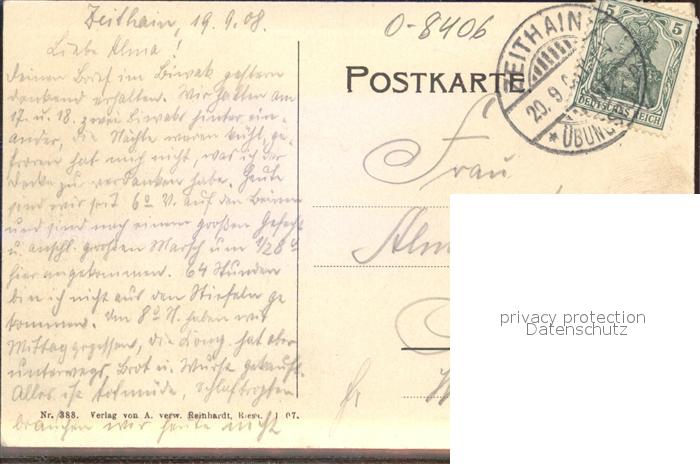 Zeithain, 19.9.08.
O-8406
Liebe Alma!
Deinen Brief im Biwak gestern
dankend erhalten. Wir hatten am
17. u. 18. zwei Biwaks hinter ein-
ander, die Nächte waren kühl, ge-
froren hat mich nicht, was ich der
Decke zu verdanken habe. Heute
sind wir seit 6° V. auf den Beinen
und sind nach einem großen Gefecht
u. anschl. großen Marsch um 1/28
hier angekommen. 64 Stunden
bin ich nicht aus den Stiefeln ge
kommen. Um 8° N. haben wir
Mittaggegessen, die Comp. hat aber
unterwegs Brot u. Wurst gekauft.
Alles ist todmüde, Schlaftropfen
brauchen wir heute nicht
Nr. 388. Verlag von A. verw. Reinhardt, Riesa. 07.
POSTKARTE.
ZEITHAIN
20.9.
* ÜBUNGS
5 5
DEUTSCHES REICH
Frau
Alm
privacy protection
Datenschutz